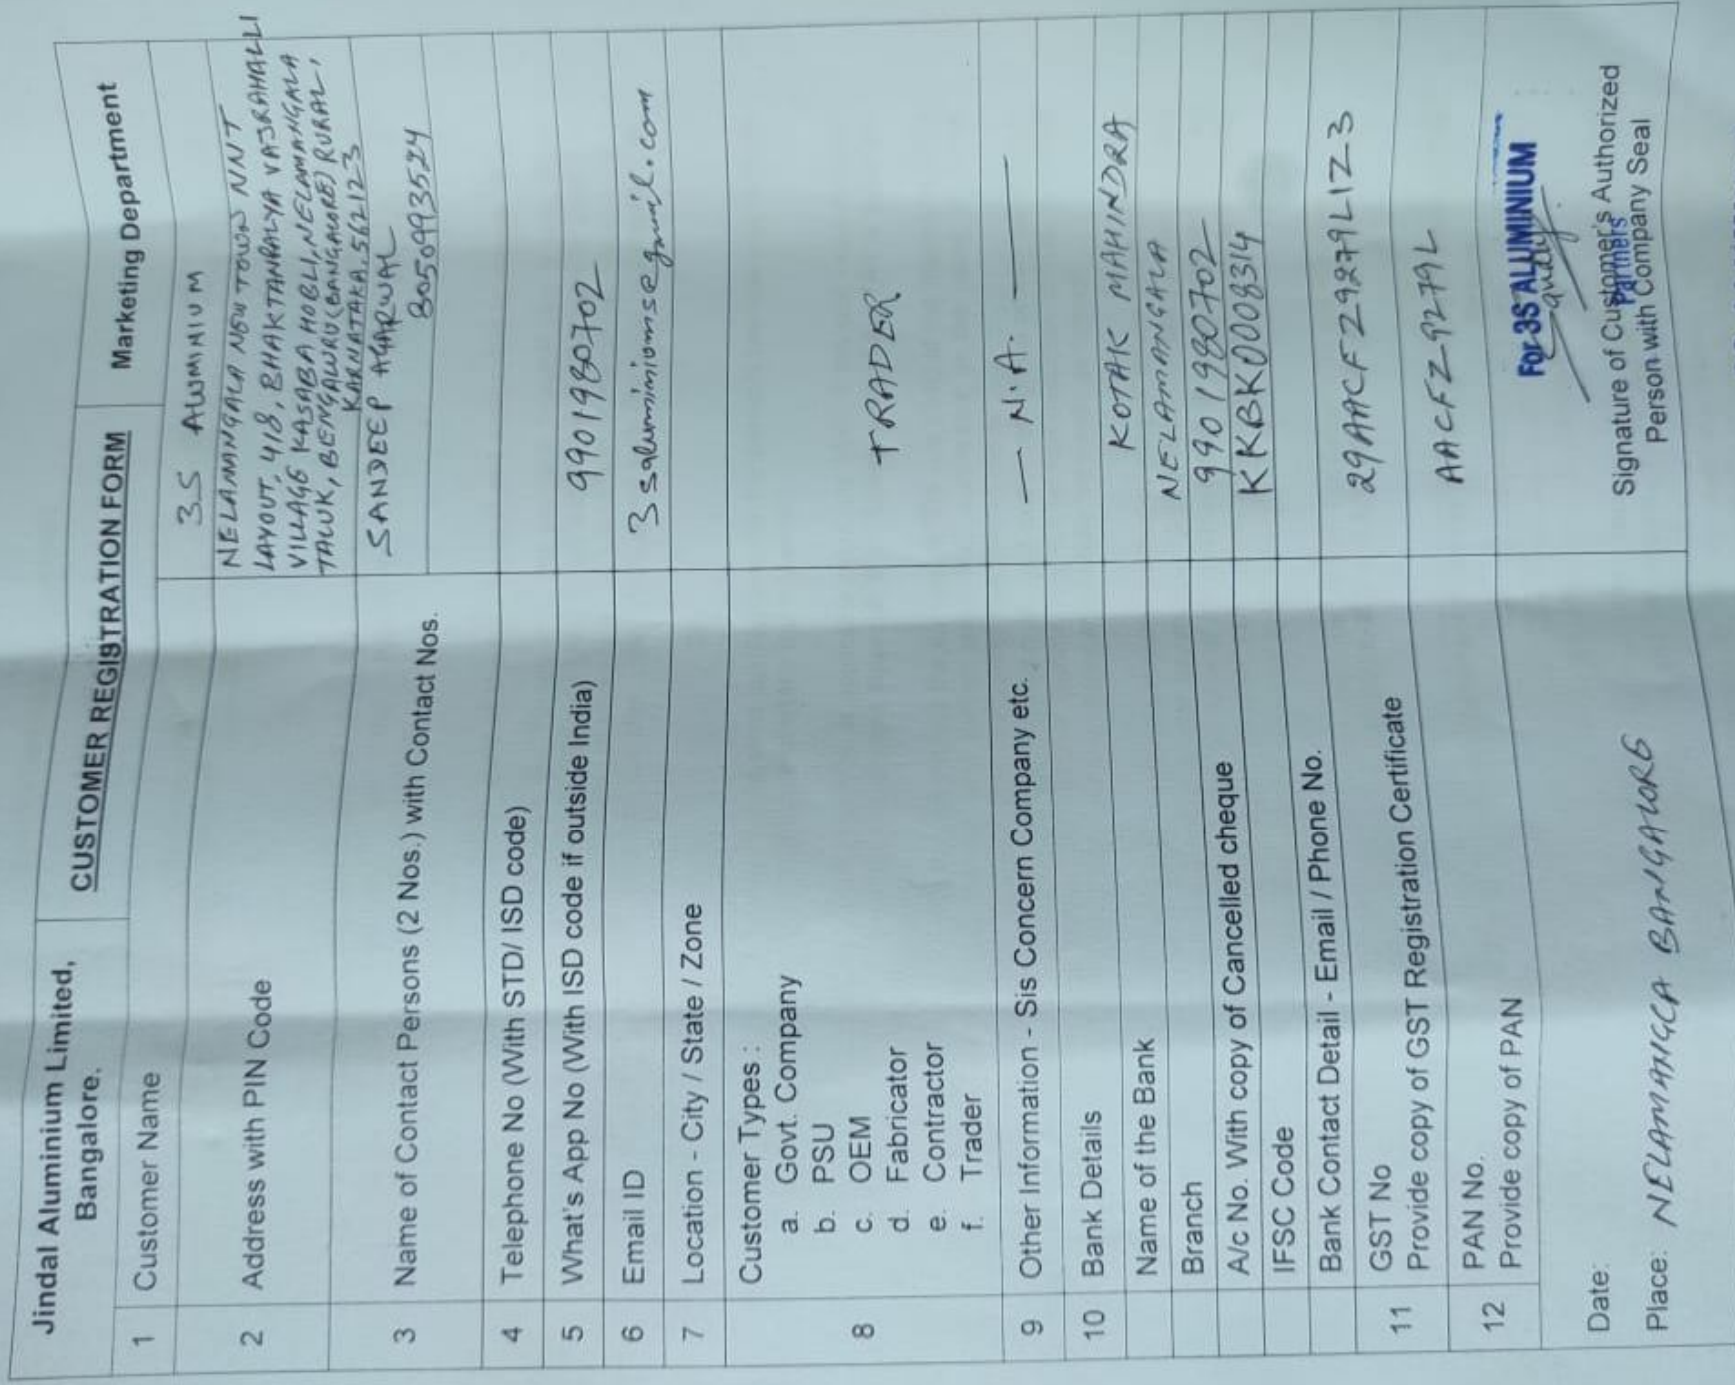 Jindal Aluminium Limited,
Bangalore.
CUSTOMER REGISTRATION FORM
Marketing Department
1 Customer Name 3S ALUMINIUM
2 Address with PIN Code NELAMANGALA NEW TOWN NNT
LAYOUT, 418, BHAKTANPALYA VAJRAHALLI
VILLAGE KASABA HOBLI, NELAMANGALA
TALUK, BENGALURU (BANGALORE) RURAL,
KARNATAKA, 562123
3 Name of Contact Persons (2 Nos.) with Contact Nos. SANDEEP AGARWAL
8050993524
4 Telephone No (With STD/ ISD code)
5 What's App No (With ISD code if outside India) 9901980702
6 Email ID 3saluminiumsegmail.com
7 Location - City / State / Zone
8 Customer Types :
a. Govt. Company
b. PSU
c. OEM
d. Fabricator
e. Contractor
f. Trader
TRADER
9 Other Information - Sis Concern Company etc. — N.A. —
10 Bank Details
Name of the Bank KOTAK MAHINDRA
Branch NELAMANGALA
A/c No. With copy of Cancelled cheque 9901980702
IFSC Code KKBK0008314
Bank Contact Detail - Email / Phone No.
11 GST No
Provide copy of GST Registration Certificate
29AACFZ9279L1Z3
12 PAN No.
Provide copy of PAN
AACFZ9279L
For 3S ALUMINIUM
Partners
Date:
Signature of Customer's Authorized
Person with Company Seal
Place: NELAMANGLA BANGALORE